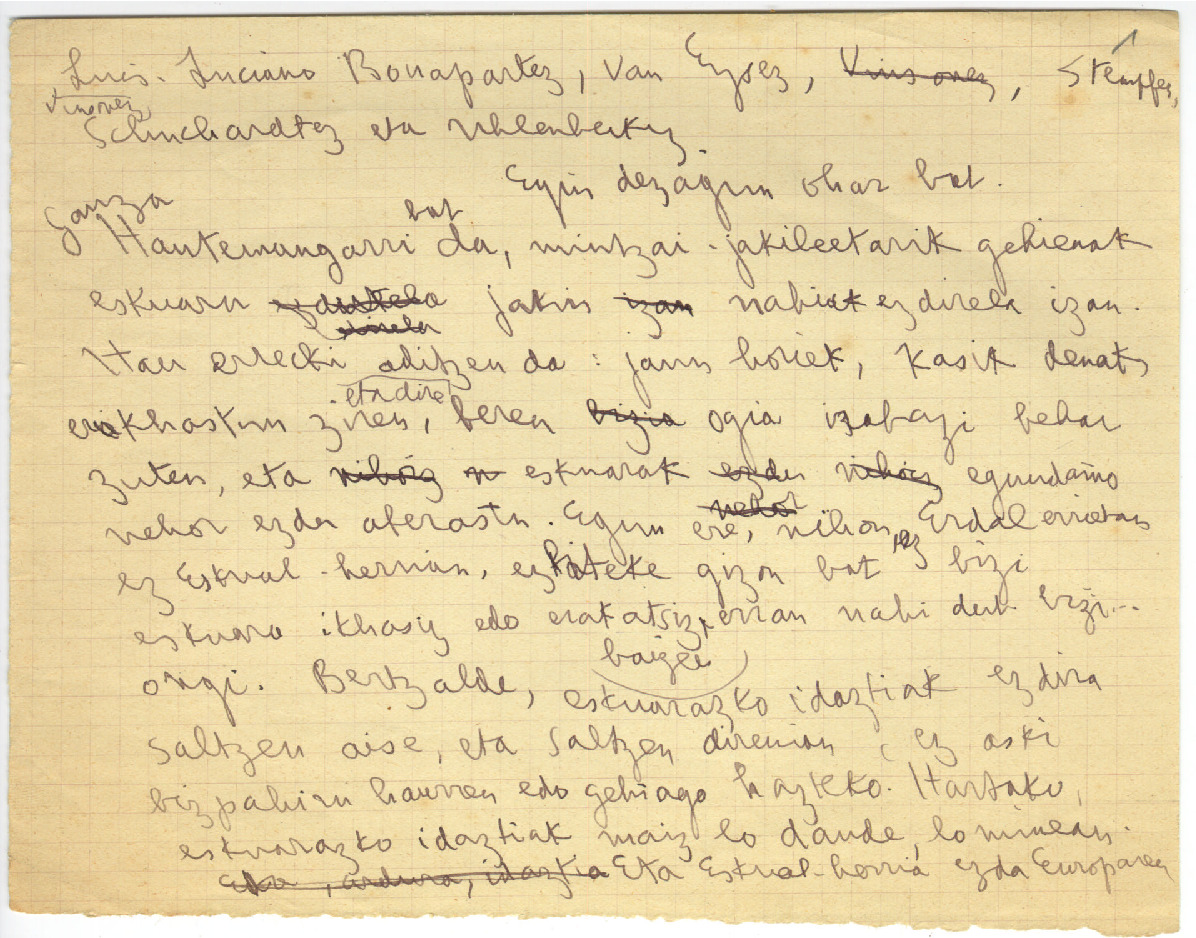 Luis-Luciano Bonapartez, Van Eysez, Vinsonez, Stempfez,
Vinsonez
Schuchardtez eta Uhlenbeckez.
Egin dezagun ohar bat.
Gauza
bat
Hautemangarri da, mintzai-jakileetarik gehienak
eskuara jakin izan nahiak ez direla izan.
direla
Hau errecki aditzen da: jaun horiek, kasik denak,
eta dire
erakhastun ziren, beren bizia ogia irabazi behar
zuten, eta nihoiz n eskuarak ezdu nihoiz egundaino
nehor ezdu aberastu. Egun ere, nihon, ez Erdal errietan
nehor
ez Eskual-herrian, ez diteke gizon bat bizi
eskuara ikhasiz edo erakatsiz, erran nahi dut bizi...
baizee
ongi. Bertzalde, eskuarazko idaztiak ezdira
saltzen aise, eta saltzen direnian, ez aski
bizpahiru haurren edo gehiago hazteko. Hartako,
eskuarazko idaztiak maiz lo daude, lo minean.
ardura, idaztia Eta Eskual-herria ezda Europaren